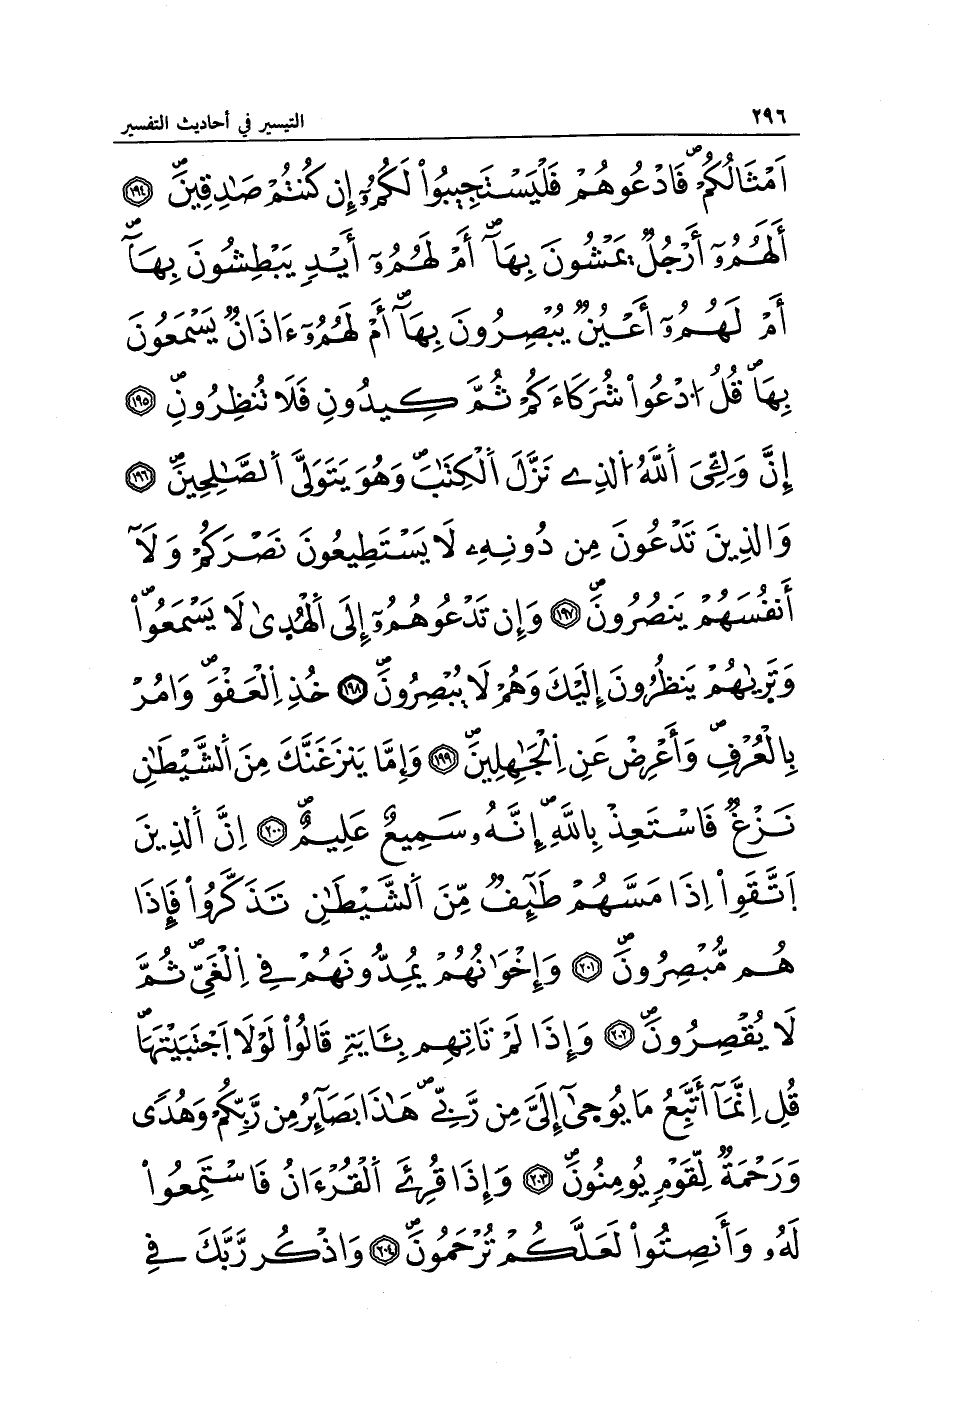 ٢٩٦
التيسير في أحاديث التفسير
أَمْثَالُكُمْ فَادْعُوهُمْ فَلْيَسْتَجِيبُواْ لَكُمُۥٓ إِن كُنتُمْ صَٰدِقِينَ ١٩٤
أَلَهُمُۥٓ أَرْجُلٌ يَمْشُونَ بِهَآ أَمْ لَهُمُۥٓ أَيْدٍ يَبْطِشُونَ بِهَآ
أَمْ لَهُمُۥٓ أَعْيُنٌ يُبْصِرُونَ بِهَآ أَمْ لَهُمُۥٓ ءَاذَانٌ يَسْمَعُونَ
بِهَا قُلُ ادْعُواْ شُرَكَاءَكُمْ ثُمَّ كِيدُونِ فَلَا تُنظِرُونِ ١٩٥
إِنَّ وَلِـِّۧىَ اَللَّهُ الذِے نَزَّلَ اَلْكِتَٰبَ وَهُوَ يَتَوَلَّى اَلصَّٰلِحِينَ ١٩٦
وَالذِينَ تَدْعُونَ مِن دُونِهِۦ لَا يَسْتَطِيعُونَ نَصْرَكُمْ وَلَآ
أَنفُسَهُمْ يَنصُرُونَ ١٩٧ وَإِن تَدْعُوهُمُۥٓ إِلَى اَلْهُدىٰ لَا يَسْمَعُواْ
وَتَرىٰهُمْ يَنظُرُونَ إِلَيْكَ وَهُمْ لَا يُبْصِرُونَ ١٩٨ خُذِ اِلْعَفْوَ وَامُرْ
بِالْعُرْفِ وَأَعْرِضْ عَنِ اِلْجَٰهِلِينَ ١٩٩ وَإِمَّا يَنزَغَنَّكَ مِنَ اَلشَّيْطَٰنِ
نَزْغٌ فَاسْتَعِذْ بِاللَّهِ إِنَّهُۥ سَمِيعٌ عَلِيمٌ ٢٠٠ اِنَّ اَلذِينَ
اَتَّقَواْ اِذَا مَسَّهُمْ طَٰٓئِفٌ مِّنَ اَلشَّيْطَٰنِ تَذَكَّرُواْ فَإِذَا
هُم مُّبْصِرُونَ ٢٠١ وَإِخْوَٰنُهُمْ يُمِدُّونَهُمْ فِي اِلْغَيِّ ثُمَّ
لَا يُقْصِرُونَ ٢٠٢ وَإِذَا لَمْ تَاتِهِم بِـَٔايَةٍ قَالُواْ لَوْلَا اَجْتَبَيْتَهَا
قُلِ اِنَّمَآ أَتَّبِعُ مَا يُوحىٰٓ إِلَيَّ مِن رَّبِّي هَٰذَا بَصَآئِرُ مِن رَّبِّكُمْ وَهُدًى
وَرَحْمَةٌ لِّقَوْمٍ يُومِنُونَ ٢٠٣ وَإِذَا قُرِئَ اَلْقُرْءَانُ فَاسْتَمِعُواْ
لَهُۥ وَأَنصِتُواْ لَعَلَّكُمْ تُرْحَمُونَ ٢٠٤ وَاذْكُر رَّبَّكَ فِي